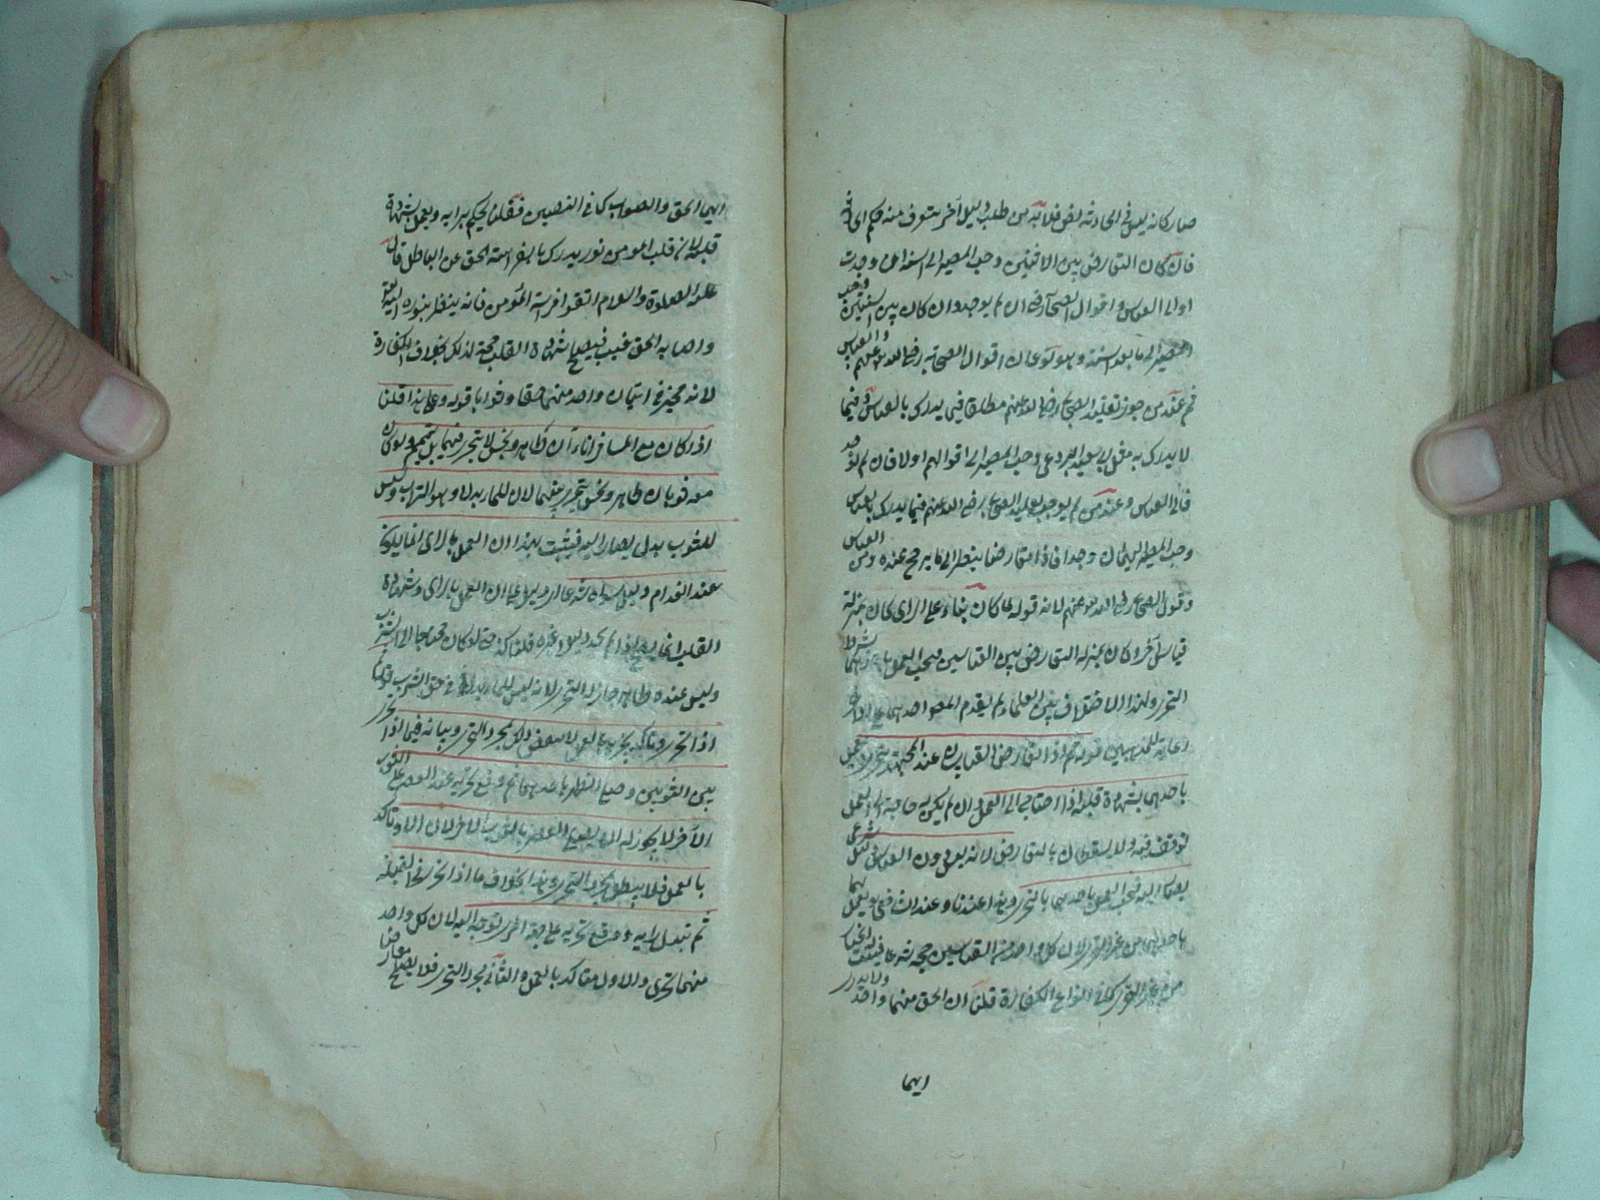 صار كانه ليس فى الحادثة نص فلا بد من طلب دليل آخر يتعرف منه حكم الحادثة
فان كان التعارض بين الآيتين وجب المصير الى السنة ان وجدت
او الى القياس واقوال الصحابة ان لم يوجد وان كان بين السنتين وجب
المصير الى ما بعد السنة وهو نوعان اقوال الصحابة رضى الله عنهم والقياس
ثم عند من جوز تقليد الصحابى رضى الله عنهم مطلقا فيما يدرك بالقياس وفيما
لا يدرك به مثل ابى سعيد البردعى وجب المصير الى اقوالهم اولا فان لم توجد
فالى القياس وعند من لم يوجب تقليد الصحابى رضى الله عنهم فيما يدرك بالقياس
وجب المصير الى فاذا تعارضا ينظر الى ما يرجح عنده من القياس
وقول الصحابى رضى الله عنهم لانه قوله لما كان بناء على الراى كان بمنزلة
قياس آخر فكان بمنزلة التعارض بين القياسين فيجب العمل باحدهما بشرط
التحرى ولهذا الاختلاف بين العلماء لم يقدم المص
رعاية للمذهبين قوله ثم اذا تعارض القياسان عند المجتهد يتحرى ويعمل
باحدهما بشهادة قلبه اذا احتاج الى العمل وان لم يكن به حاجة الى العمل
توقف فيه ولا يسقطان بالتعارض لانه ليس دون القياس دليل شرعى
يصار اليه فيجب العمل باحدهما بالتحرى وهذا عندنا وعند الشافعى يعمل
باحدهما من غير التحرى لان كل واحد من القياسين حجة شرعا فيثبت له الخيار
من غير التحرى كما فى انواع الكفارة قلنا ان الحق منهما واحد ولا يدرى
ايهما
ايهما الحق والصواب كما فى النصين فقلنا يحكم برايه ويعمل بشهادة
قلبه لان لقلب المومن نور يدرك بالفراسة الحق عن الباطل قال
عليه الصلوة والسلام اتقوا فراسة المؤمن فانه ينظر بنور الله
واصابه الحق غيب فيصلح شهادة القلب حجة لذلك بخلاف الكفارة
لانه مخير فى اتيان واحد منهما حقا وصوابا قوله وعلى هذا قلنا
اذا كان مع المسافر اناءان طاهر ونجس لا يتحرى فيهما بل يتيمم ولو كان
معه ثوبان طاهر ونجس يتحرى بينهما لان للماء بدلا وهو التراب وليس
للثوب بدل يصار اليه فيثبت بهذا ان العمل بالراى انما يكون
عند انعدام دليل سواه شرعا ان العمل بالراى وشهادة
القلب انما يصلح اذا لم يجد دليلا غيره قلنا كذا حتى لو كان محتاجا الى الشرب
وليس عنده طاهر جاز له التحرى لانه ليس للماء بدل فى حق الشرب قوله ثم
اذا تحرى وتاكد تحريه بالعمل لا ينتقض ذلك بمجرد التحرى وبيانه فيما اذا تحرى
بين الثوبين وصلى الظهر باحدهما ثم وقع تحريه عند العصر على الثوب
الآخر لا يجوز له ان يصلى العصر بالثوب الآخر لان الاول تاكد
بالعمل فلا يبطل بمجرد التحرى وهذا بخلاف ما اذا تحرى فى القبلة
ثم تبدل رايه ووقع تحريه على جهة اخرى توجه اليه لان كل واحد
منهما تحرى والاول متاكد بالعمل والثانى بمجرد التحرى فلا يصلح معارضا